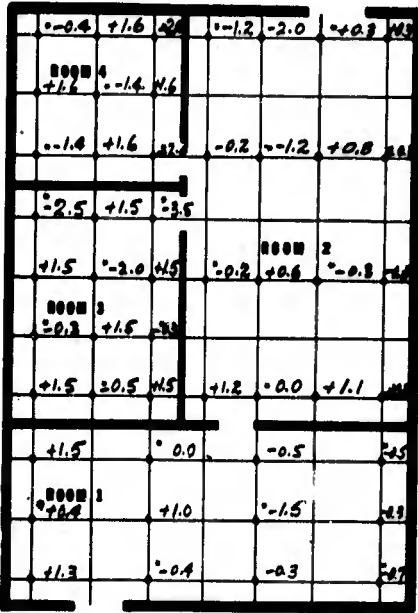 -0.4 +1.6 -1.2 -2.0 +0.3
ROOM 4
+1.6 -1.4 +1.6
-1.4 +1.6 -0.2 -1.2 +0.8
-2.5 +1.5 -3.5
ROOM 2
+1.5 -2.0 +1.5 -0.2 +0.6 -0.3
ROOM 3
-0.3 +1.5
+1.5 +1.5 +1.2 0.0 +1.1
+1.5 0.0 -0.5
ROOM 1
+0.4 +1.0 -1.5
+1.3 -0.4 -0.3